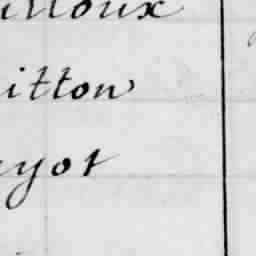 illoux
itton
yot